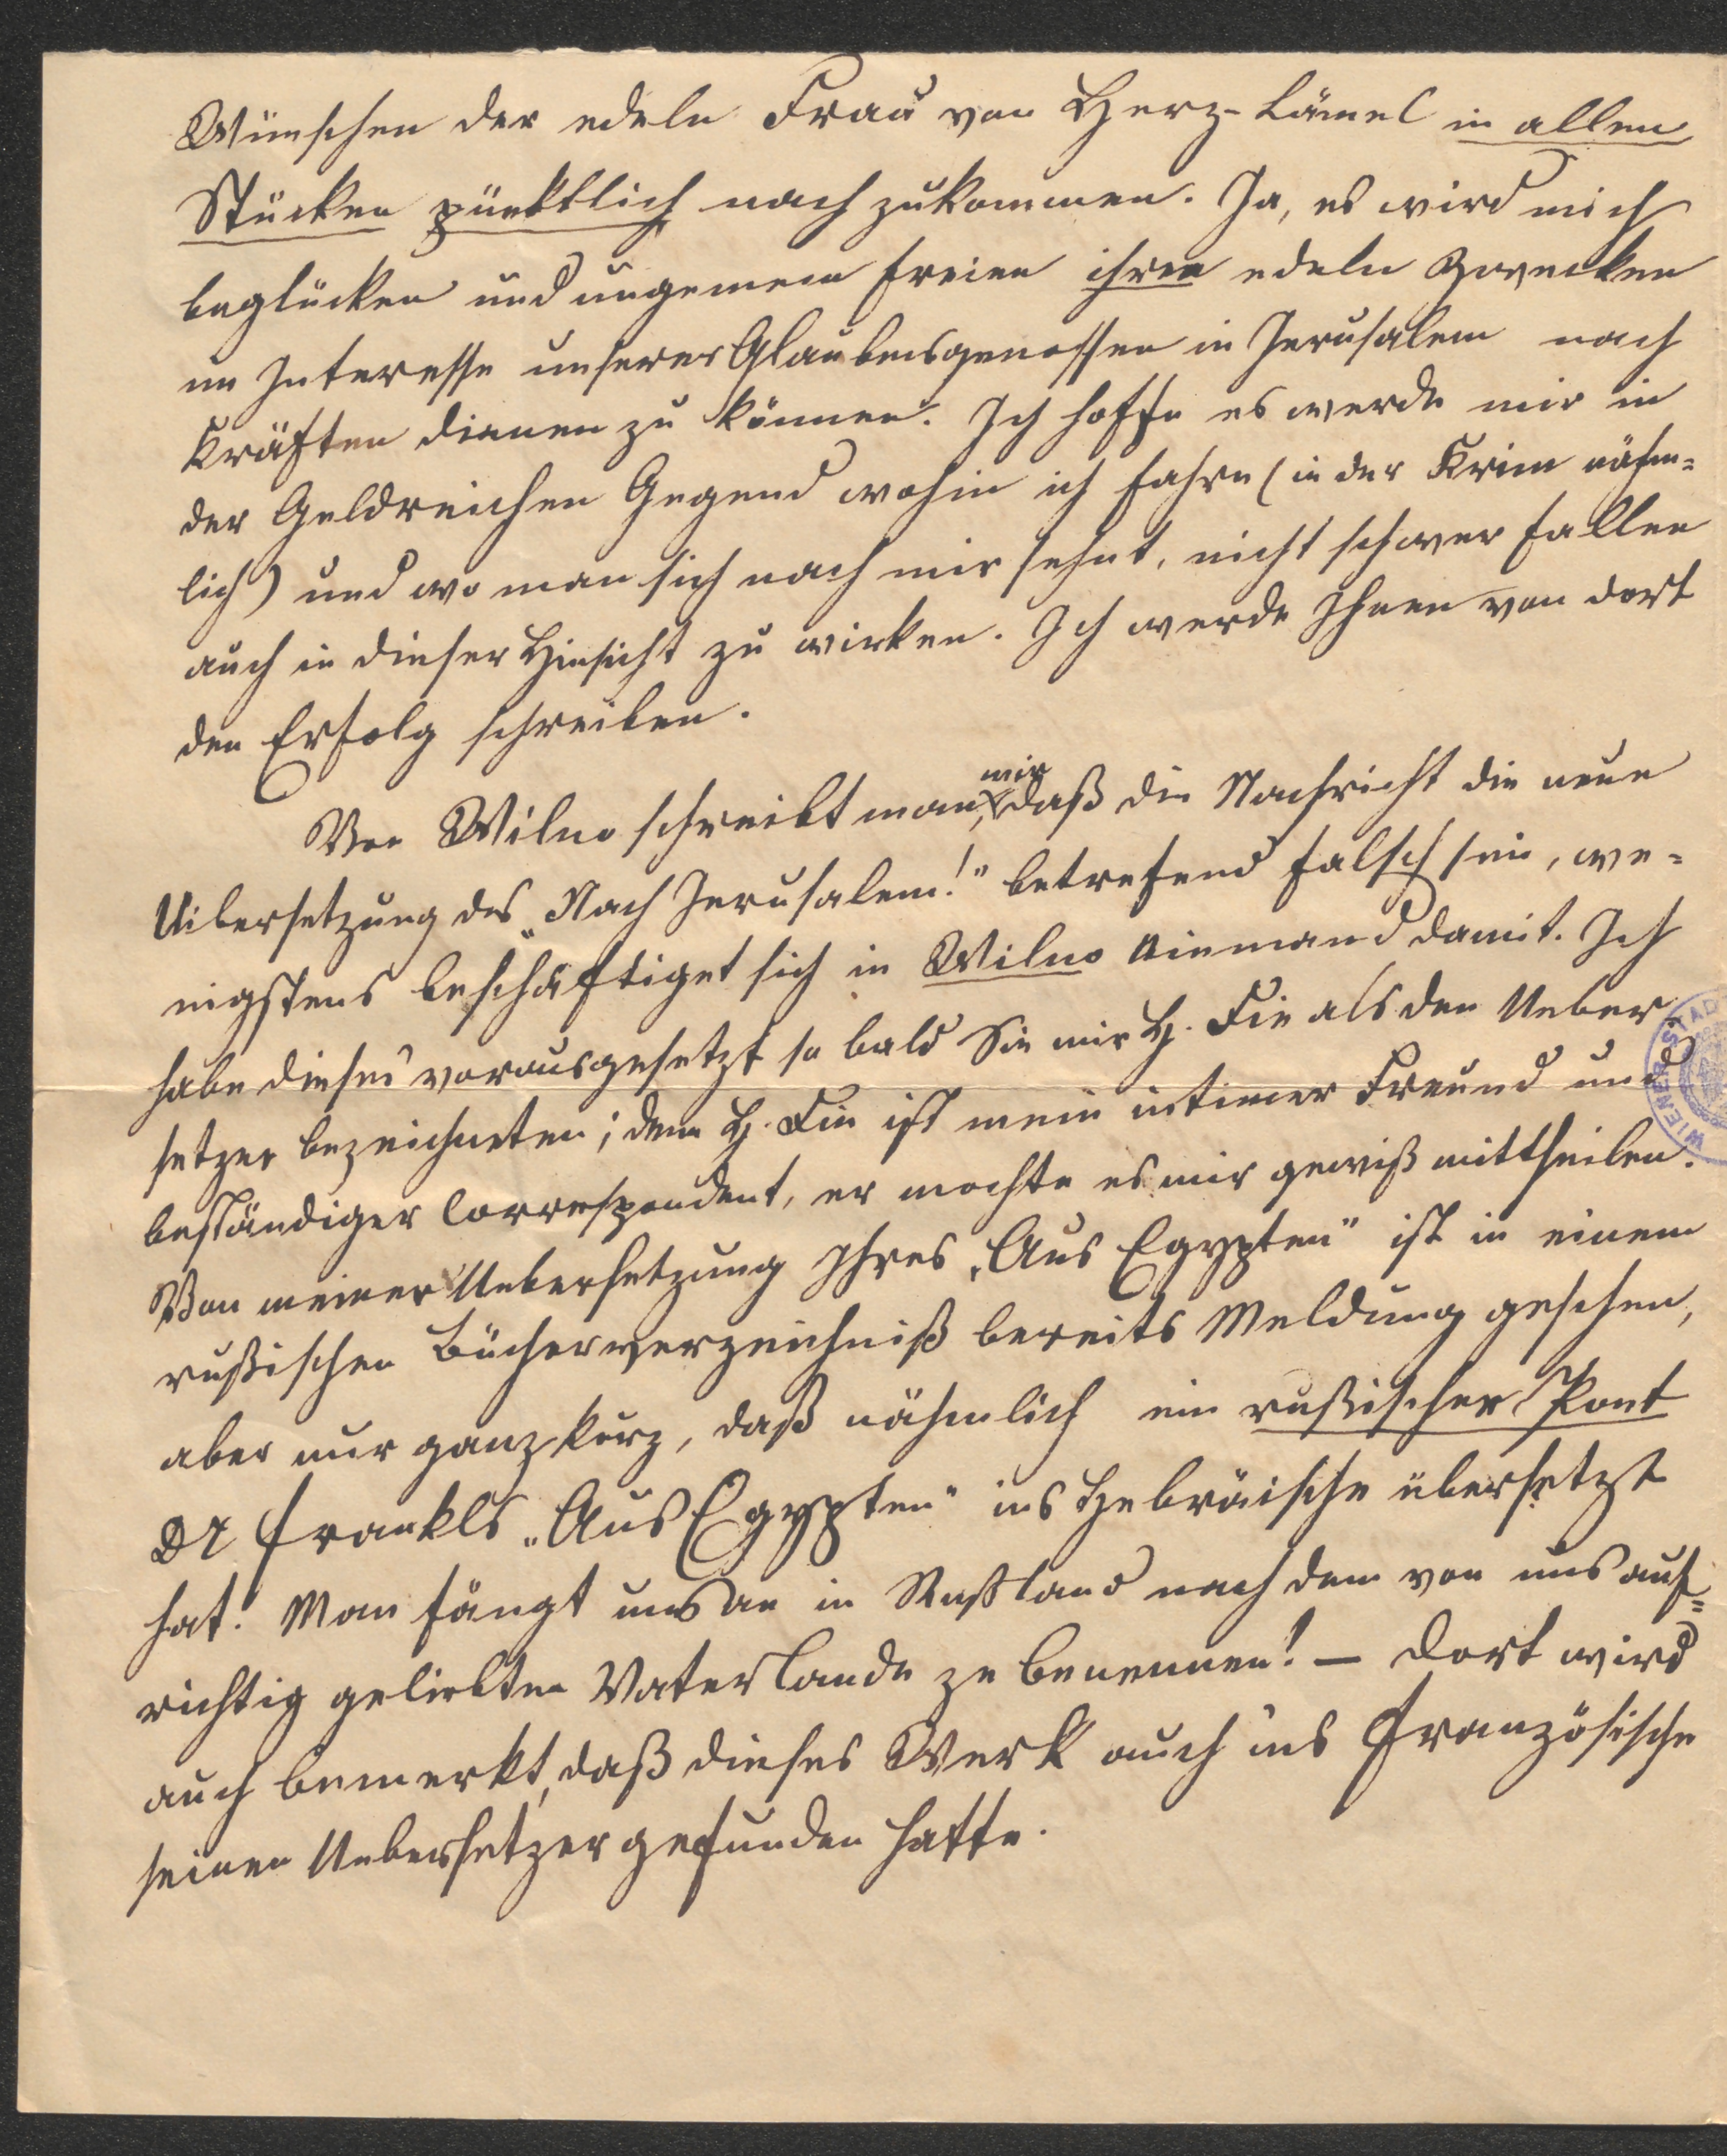 Wünschen der edeln Frau von Herz-Lämel in allen
Stücken pünktlich nachzukommen. Ja, es wird mich
beglücken und ungemein freien ihren edeln Zwecken
im Interesse unserer Glaubensgenossen in Jerusalem nach
Kräften dienen zu können. Ich hoffe es werde mir in
der Geldreichen Gegend wohin ich fahre (in der Krim nähm=
lich) und wo man sich nach mir sehnt, nicht schwer fallen
auch in dieser Hinsicht zu wirken. Ich werde Ihnen von dort
den Erfolg schreiben.
Von Wilno schreibt man mir, daß die Nachricht die neue
Uibersetzung des „Nach Jerusalem!" betrefend falsch sein, we=
nigstens beschäftiget sich in Wilno Niemand damit. Ich
habe dieses vorausgesetzt so bald Sie mir H. Fin als den Ueber
setzer bezeichneten; denn H. Fin ist mein intimer Freund und
beständiger Correspondent, er mochte es mir gewiß mittheilen.
Von meiner Uebersetzung Ihres „Aus Egypten" ist in einem
rußischen Bücherverzeichniß bereits Meldung geschen,
aber nur ganz kurz, daß nähmlich ein rußischer Poet
Dr Frankls „Aus Egypten" ins Hebräische übersetzt
hat. Man fängt uns an in Rußland nach dem von uns auf=
richtig geliebten Vaterlande ze benennen! — Dort wird
auch bemerkt, daß dieses Werk auch ins Französische
seinen Uebersetzer gefunden hatte.
WIENER STAD